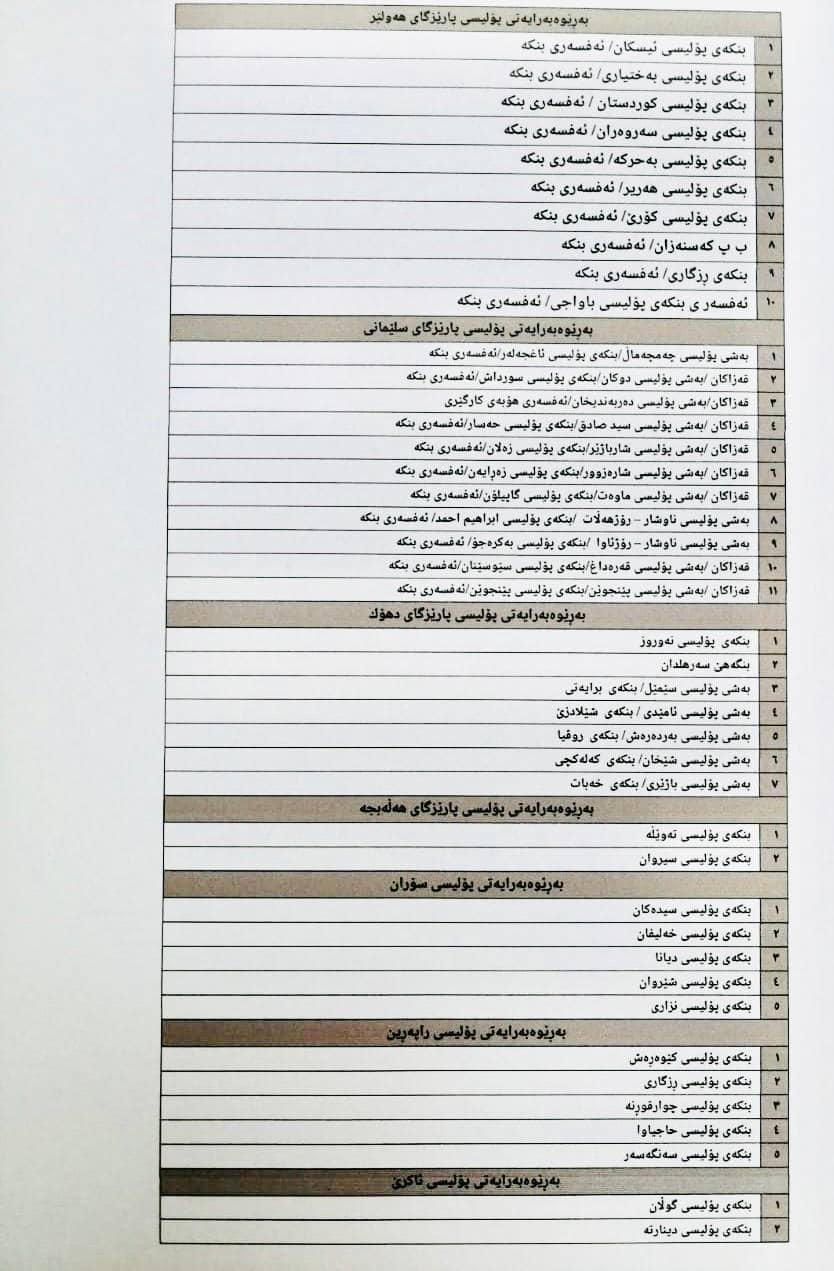 بەڕێوەبەرایەتی پۆلیسی پارێزگای هەولێر
١ بنکەی پۆلیسی ئیسکان/ ئەفسەری بنکە
٢ بنکەی پۆلیسی بەختیاری/ ئەفسەری بنکە
٣ بنکەی پۆلیسی کوردستان / ئەفسەری بنکە
٤ بنکەی پۆلیسی سەروەران/ ئەفسەری بنکە
٥ بنکەی پۆلیسی بەحرکە/ ئەفسەری بنکە
٦ بنکەی پۆلیسی هەریر/ ئەفسەری بنکە
٧ بنکەی پۆلیسی کۆڕێ/ ئەفسەری بنکە
٨ ب پ کەسنەزان/ ئەفسەری بنکە
٩ بنکەی ڕزگاری/ ئەفسەری بنکە
١٠ ئەفسەر ی بنکەی پۆلیسی باواجی/ ئەفسەری بنکە
بەڕێوەبەرایەتی پۆلیسی پارێزگای سلێمانی
١ بەشی پۆلیسی چەمچەماڵ/بنکەی پۆلیسی ئاغجەلەر/ئەفسەری بنکە
٢ قەزاکان /بەشی پۆلیسی دوکان/بنکەی پۆلیسی سورداش/ئەفسەری بنکە
٣ قەزاکان/بەشی پۆلیسی دەربەندیخان/ئەفسەری هۆبەی کارگێری
٤ قەزاکان /بەشی پۆلیسی سید صادق/بنکەی پۆلیسی حەسار/ئەفسەری بنکە
٥ قەزاکان /بەشی پۆلیسی شارباژێر/بنکەی پۆلیسی زەلان/ئەفسەری بنکە
٦ قەزاکان /بەشی پۆلیسی شارەزوور/بنکەی پۆلیسی زەڕایەن/ئەفسەری بنکە
٧ قەزاکان /بەشی پۆلیسی ماوەت/بنکەی پۆلیسی گاپیلۆن/ئەفسەری بنکە
٨ بەشی پۆلیسی ناوشار – رۆژهەڵات /بنکەی پۆلیسی ابراهیم احمد/ ئەفسەری بنکە
٩ بەشی پۆلیسی ناوشار – رۆژئاوا /بنکەی پۆلیسی بەکرەجۆ/ ئەفسەری بنکە
١٠ قەزاکان /بەشی پۆلیسی قەرەداغ/بنکەی پۆلیسی سێوسێنان/ئەفسەری بنکە
١١ قەزاکان /بەشی پۆلیسی پێنجوێن/بنکەی پۆلیسی پێنجوێن/ئەفسەری بنکە
بەڕێوەبەرایەتی پۆلیسی پارێزگای دهۆك
١ بنکەی پۆلیسی نەوروز
٢ بنگەهێ سەرهلدان
٣ بەشی پۆلیسی سێمێل/ بنکەی برایەتی
٤ بەشی پۆلیسی ئامێدی / بنکەی شێلادزێ
٥ بەشی پۆلیسی بەردەرەش/ بنکەی روڤیا
٦ بەشی پۆلیسی شێخان/ بنکەی کەلەکچی
٧ بەشی پۆلیسی باژێری/ بنکەی خەبات
بەڕێوەبەرایەتی پۆلیسی پارێزگای هەڵەبجە
١ بنکەی پۆلیسی تەوێڵە
٢ بنکەی پۆلیسی سیروان
بەڕێوەبەرایەتی پۆلیسی سۆران
١ بنکەی پۆلیسی سیدەکان
٢ بنکەی پۆلیسی خەلیفان
٣ بنکەی پۆلیسی دیانا
٤ بنکەی پۆلیسی شێروان
٥ بنکەی پۆلیسی نزاری
بەڕێوەبەرایەتی پۆلیسی راپەرین
١ بنکەی پۆلیسی کێوەڕەش
٢ بنکەی پۆلیسی ڕزگاری
٣ بنکەی پۆلیسی چوارقوڕنە
٤ بنکەی پۆلیسی حاجیاوا
٥ بنکەی پۆلیسی سەنگەسەر
بەڕێوەبەرایەتی پۆلیسی ئاکرێ
١ بنکەی پۆلیسی گوڵان
٢ بنکەی پۆلیسی دینارتە